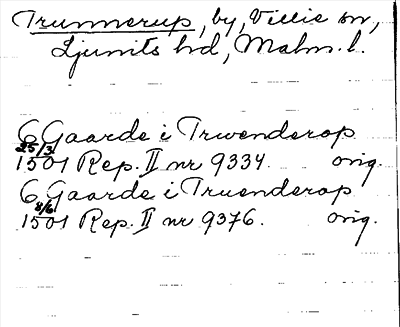 Trunnerup, by, Villie sn,
Ljunits hd, Malm. l.
6 Gaarde i Trwenderop
25/3 1501 Rep. II nr 9334. orig.
6 Gaarde i Truenderop
8/6 1501 Rep. II nr 9376. orig.